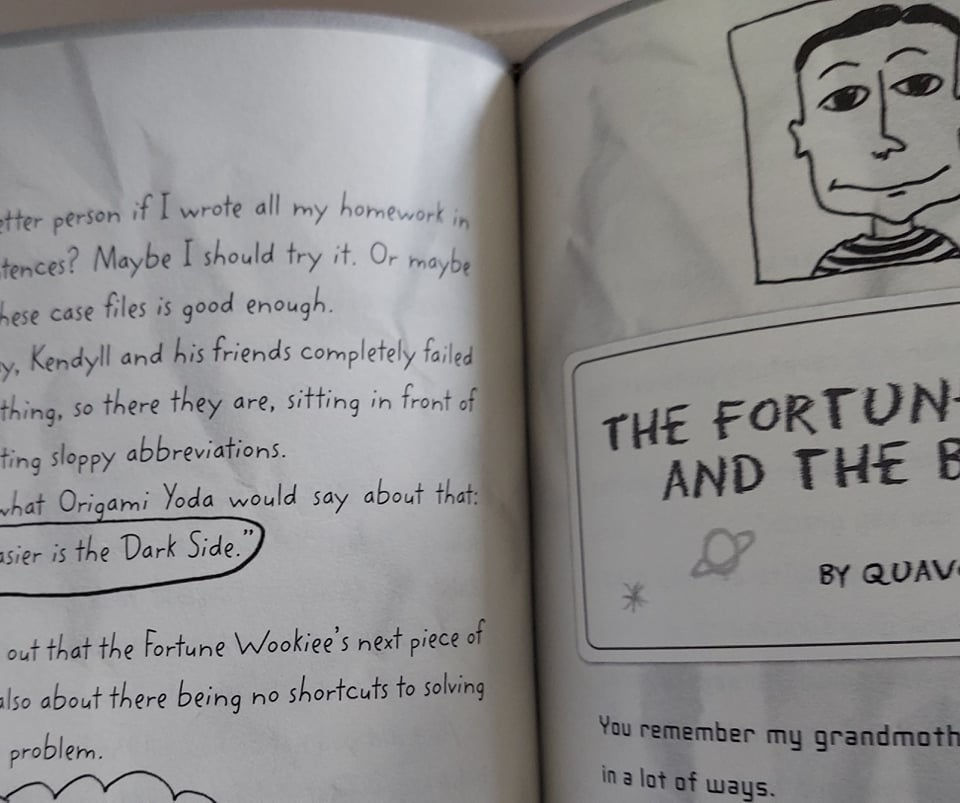 etter person if I wrote all my homework in
tences? Maybe I should try it. Or maybe
hese case files is good enough.
y, Kendyll and his friends completely failed
thing, so there they are, sitting in front of
ting sloppy abbreviations.
what Origami Yoda would say about that:
asier is the Dark Side."
out that the Fortune Wookiee's next piece of
also about there being no shortcuts to solving
problem.
THE FORTUN
AND THE B
BY QUAV
You remember my grandmoth
in a lot of ways.